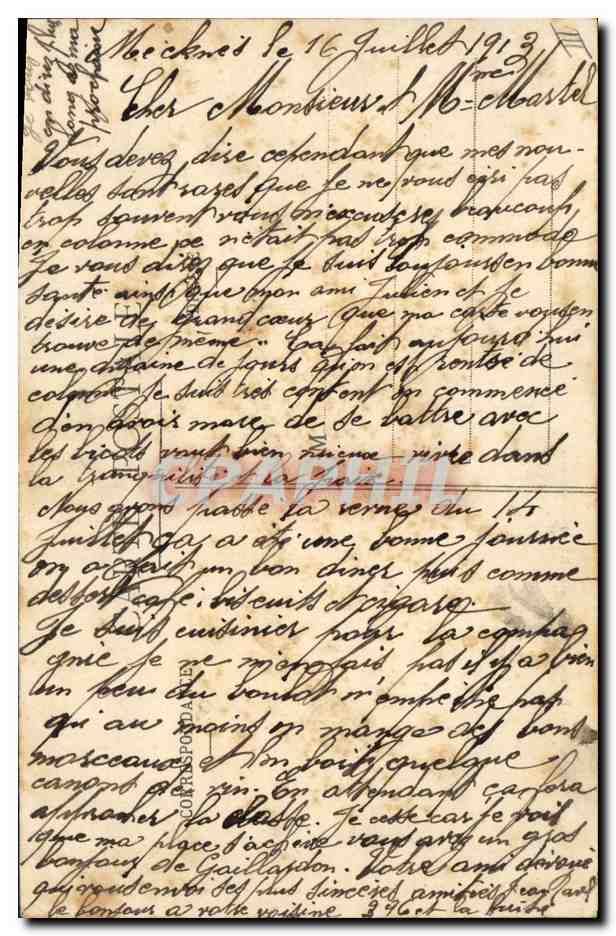 Mecknès le 16 Juillet 1913
Cher Monsieur et Mme Martel
Vous devez dire cependant que mes nou-
velles sont rares que je ne vous écri pas
trop souvent vous m'excuserez beaucoup
en colonne ce n'était pas trop commode
Je vous direz que je suis toujours en bonne
santé ainsi que mon ami Julien et je
désire de grand cœur que ma carte vous en
trouve de même. Ça fait aujourd'hui
une dizaine de jours qu'on est rentré de
colonne je suis très content on commencé
d'en avoir mare de se battre avec
les bicots vaut bien mieux vivre dans
la tranquilité et la paix.
Nous avons passé la revue du 14
Juillet ça a été une bonne journée
on a fait un bon diner puis comme
dessert café, biscuits et cigares.
Je suis cuisinier pour la compa
gnie je ne m'en fais pas il y a bien
un peu du boulot n'empêche pas
qu'au moins on mange des bons
morceaux et on bois quelque
canons de vin. En attendant ça fera
la classe. Je cesse car je vois
que ma place s'achève vous avez un gros
bonjour de Gaillardon. Votre ami dévoué
qui vous envoi ses plus sincères amitiés
le bonjour à votre voisine 396 et la
Je vous
en direz plus
long à ma
prochaine
III
CARTE POSTALE
CORRESPONDANCE
M
CPAPHIL